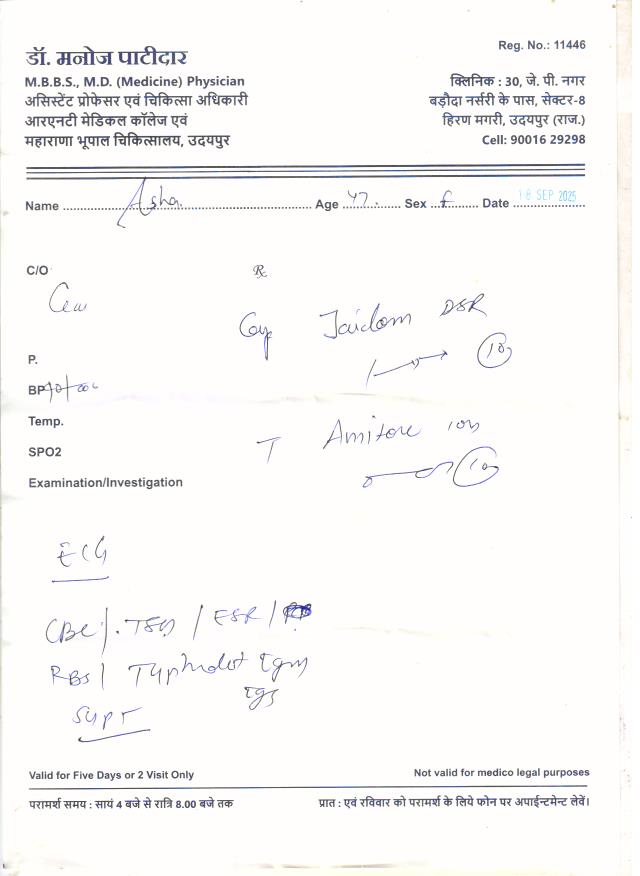 डॉ. मनोज पाटीदार
M.B.B.S., M.D. (Medicine) Physician
असिस्टेंट प्रोफेसर एवं चिकित्सा अधिकारी
आरएनटी मेडिकल कॉलेज एवं
महाराणा भूपाल चिकित्सालय, उदयपुर
Reg. No.: 11446
क्लिनिक : 30, जे. पी. नगर
बड़ौदा नर्सरी के पास, सेक्टर-8
हिरण मगरी, उदयपुर (राज.)
Cell: 90016 29298
Name Asha Age 47 Sex f Date 18 SEP 2025
C/O
Rx
Cap DSR
10
P.
BP
Temp.
T 10
SPO2
10
Examination/Investigation
ECG
CBC / TSH / ESR /
RBS / Typhidot IgM
IgG
SGPT
Valid for Five Days or 2 Visit Only
Not valid for medico legal purposes
परामर्श समय : सायं 4 बजे से रात्रि 8.00 बजे तक
प्रात : एवं रविवार को परामर्श के लिये फोन पर अपाईन्टमेन्ट लेवें।